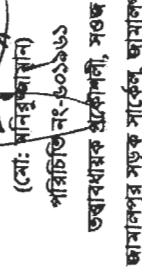 (মো: মনিরুজ্জামান)
পরিচিতি নং-৬০১৯৬১
তত্ত্বাবধায়ক প্রকৌশলী, সওজ
জামালপুর সড়ক সার্কেল, জামালপুর